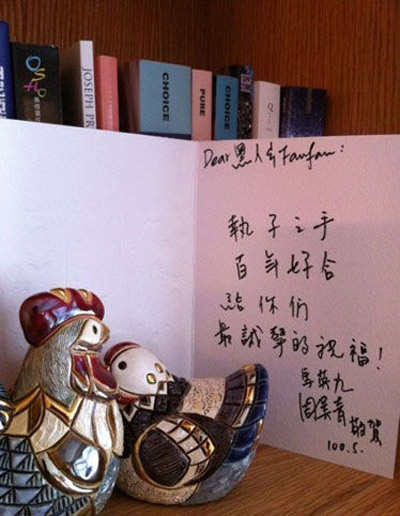 OSHO
JOSEPH PR
CHOICE
PURE
CHOICE
Dear 黑人&Fanfan:
執子之手
百年好合
給你們
最誠摯的祝福!
馬英九
周美青 敬賀
100.5.